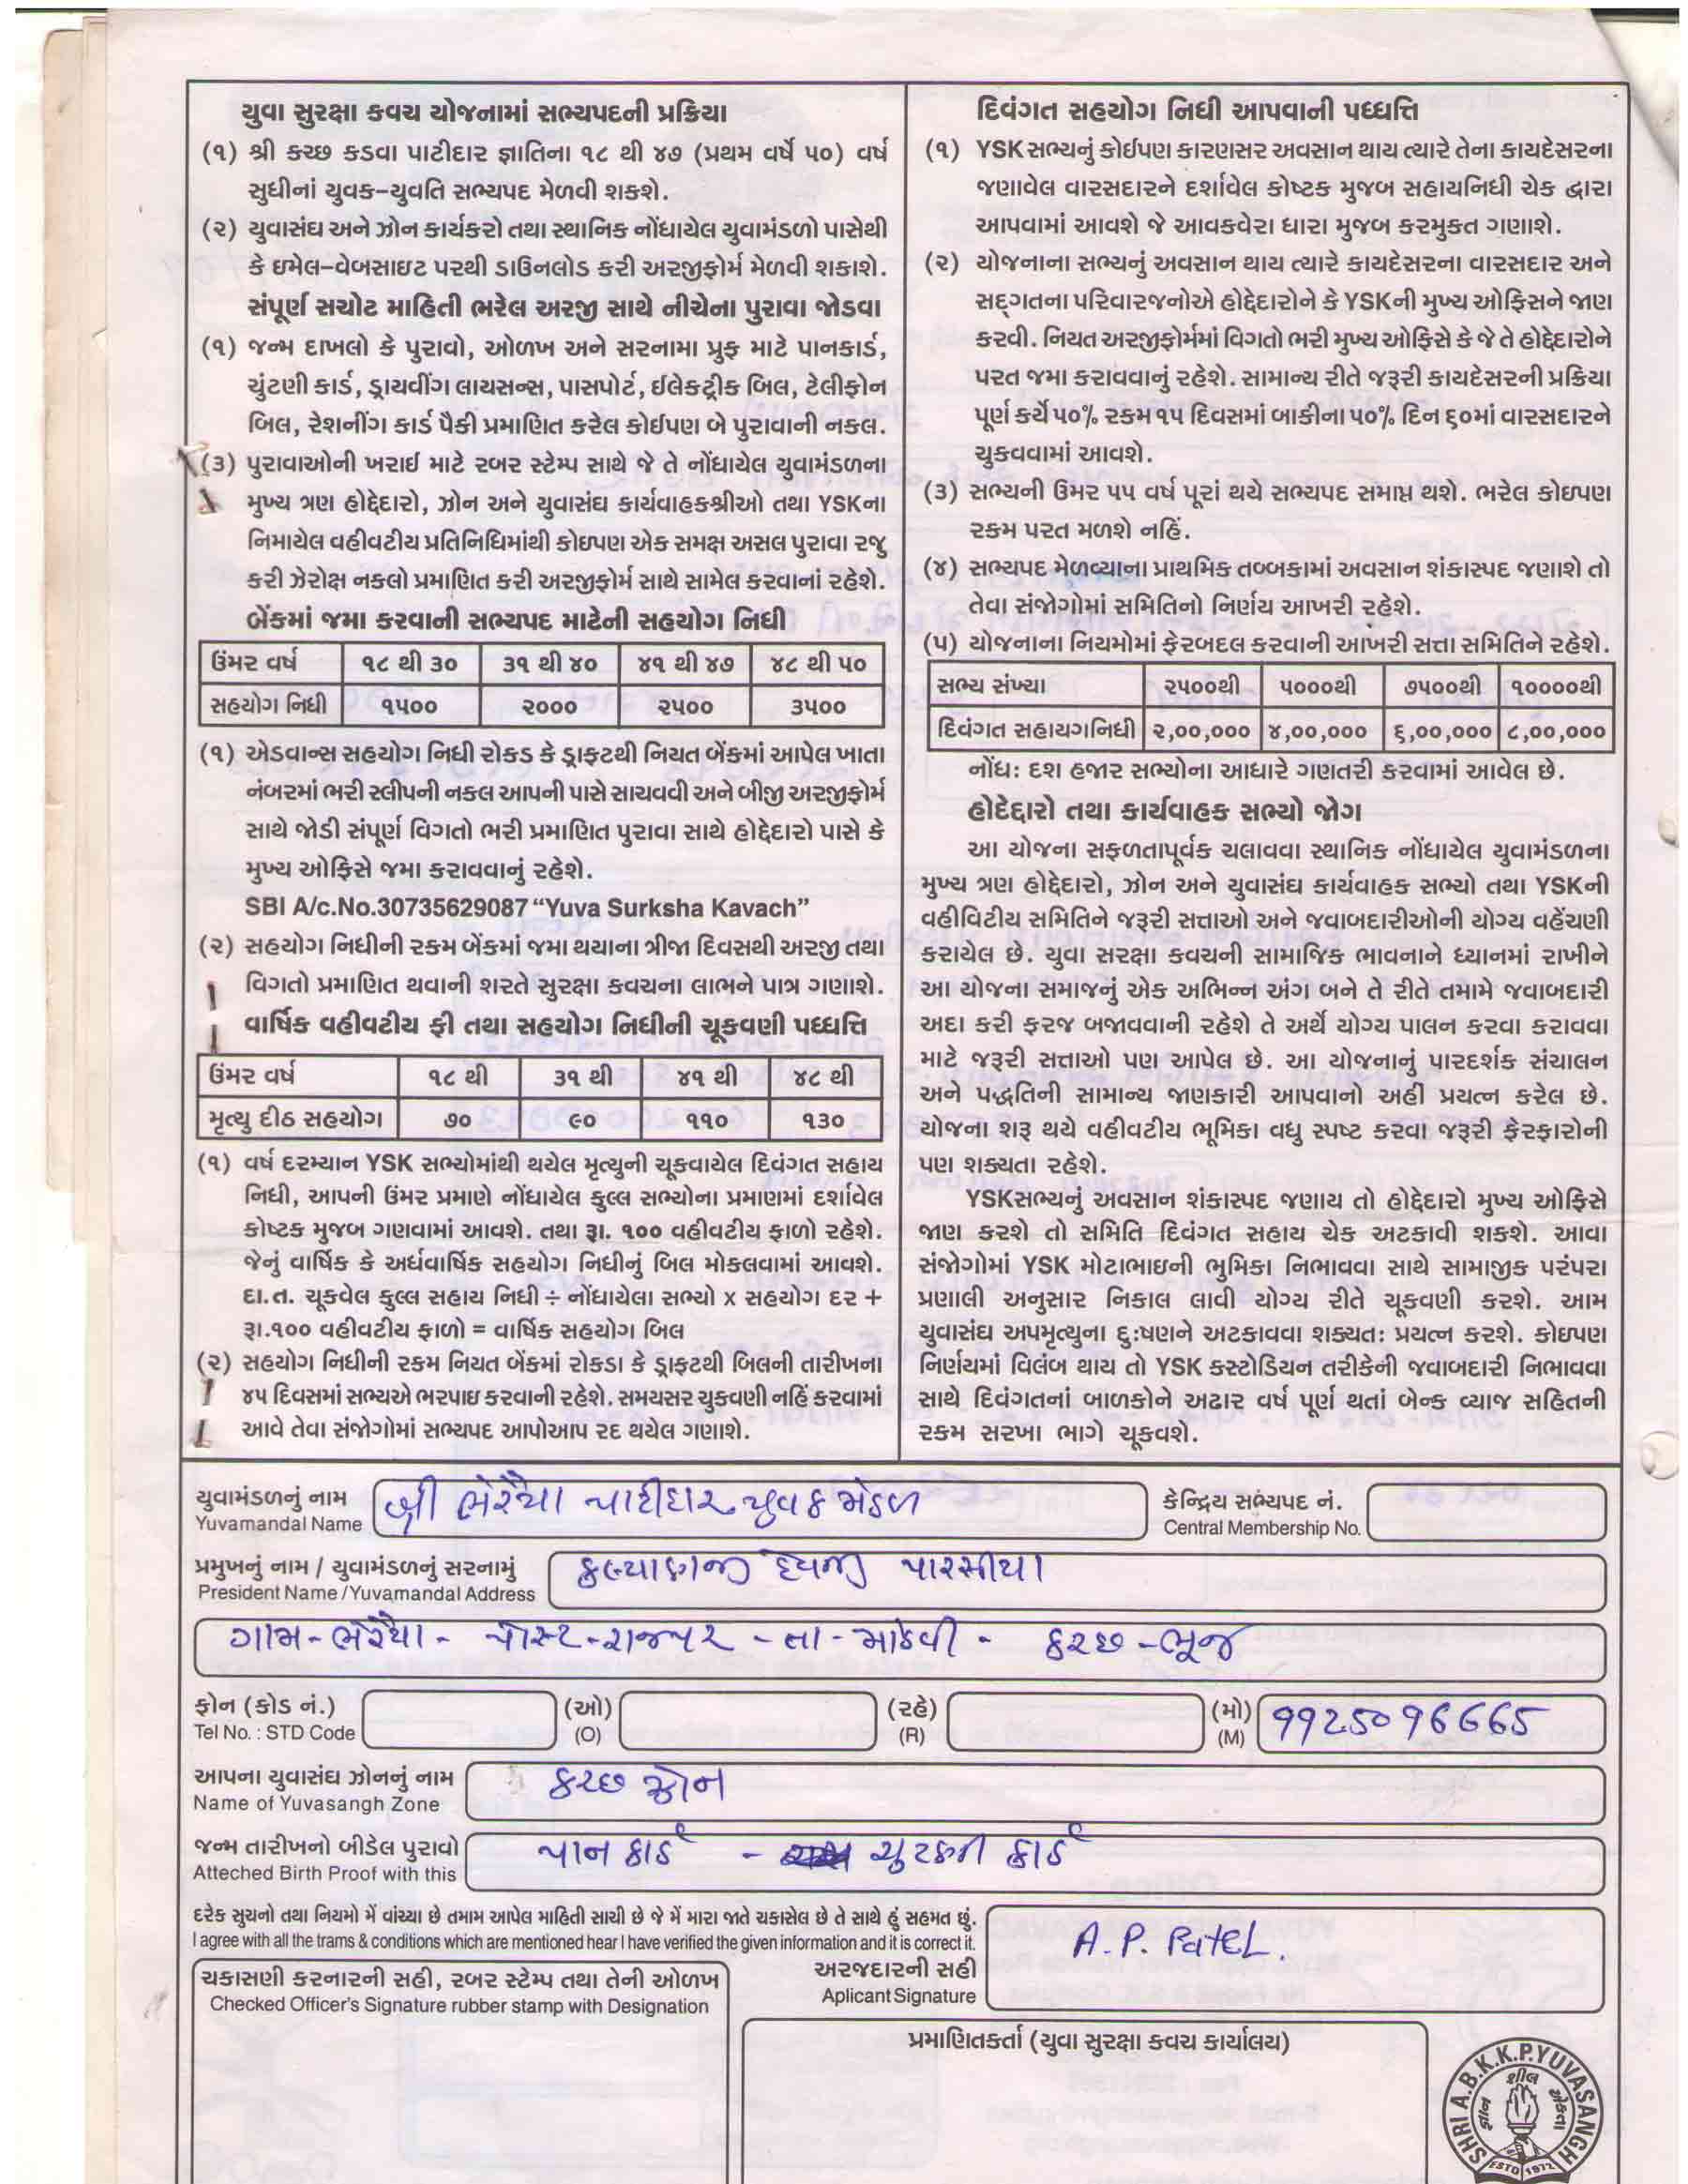 યુવા સુરક્ષા કવચ યોજનામાં સભ્યપદની પ્રક્રિયા
(૧) શ્રી કચ્છ કડવા પાટીદાર જ્ઞાતિના ૧૮ થી ૪૭ (પ્રથમ વર્ષે ૫૦) વર્ષ
સુધીનાં યુવક-યુવતિ સભ્યપદ મેળવી શકશે.
(૨) યુવાસંઘ અને ઝોન કાર્યકરો તથા સ્થાનિક નોંધાયેલ યુવામંડળો પાસેથી
કે ઇમેલ-વેબસાઇટ પરથી ડાઉનલોડ કરી અરજીફોર્મ મેળવી શકાશે.
સંપૂર્ણ સચોટ માહિતી ભરેલ અરજી સાથે નીચેના પુરાવા જોડવા
(૧) જન્મ દાખલો કે પુરાવો, ઓળખ અને સરનામા પ્રુફ માટે પાનકાર્ડ,
ચુંટણી કાર્ડ, ડ્રાયવીંગ લાયસન્સ, પાસપોર્ટ, ઈલેક્ટ્રીક બિલ, ટેલીફોન
બિલ, રેશનીંગ કાર્ડ પૈકી પ્રમાણિત કરેલ કોઈપણ બે પુરાવાની નકલ.
(૩) પુરાવાઓની ખરાઈ માટે રબર સ્ટેમ્પ સાથે જે તે નોંધાયેલ યુવામંડળના
મુખ્ય ત્રણ હોદ્દેદારો, ઝોન અને યુવાસંઘ કાર્યવાહકશ્રીઓ તથા YSKના
નિમાયેલ વહીવટીય પ્રતિનિધિમાંથી કોઇપણ એક સમક્ષ અસલ પુરાવા રજુ
કરી ઝેરોક્ષ નકલો પ્રમાણિત કરી અરજીફોર્મ સાથે સામેલ કરવાનાં રહેશે.
બેંકમાં જમા કરવાની સભ્યપદ માટેની સહયોગ નિધી
ઉંમર વર્ષ ૧૮ થી ૩૦ ૩૧ થી ૪૦ ૪૧ થી ૪૭ ૪૮ થી ૫૦
સહયોગ નિધી ૧૫૦૦ ૨૦૦૦ ૨૫૦૦ ૩૫૦૦
(૧) એડવાન્સ સહયોગ નિધી રોકડ કે ડ્રાફટથી નિયત બેંકમાં આપેલ ખાતા
નંબરમાં ભરી સ્લીપની નકલ આપની પાસે સાચવવી અને બીજી અરજીફોર્મ
સાથે જોડી સંપૂર્ણ વિગતો ભરી પ્રમાણિત પુરાવા સાથે હોદ્દેદારો પાસે કે
મુખ્ય ઓફિસે જમા કરાવવાનું રહેશે.
SBI A/c.No.30735629087 “Yuva Surksha Kavach”
(૨) સહયોગ નિધીની રકમ બેંકમાં જમા થયાના ત્રીજા દિવસથી અરજી તથા
વિગતો પ્રમાણિત થવાની શરતે સુરક્ષા કવચના લાભને પાત્ર ગણાશે.
વાર્ષિક વહીવટીય ફી તથા સહયોગ નિધીની ચૂકવણી પધ્ધતિ
ઉંમર વર્ષ ૧૮ થી ૩૧ થી ૪૧ થી ૪૮ થી
મૃત્યુ દીઠ સહયોગ ૭૦ ૯૦ ૧૧૦ ૧૩૦
(૧) વર્ષ દરમ્યાન YSK સભ્યોમાંથી થયેલ મૃત્યુની ચૂકવાયેલ દિવંગત સહાય
નિધી, આપની ઉંમર પ્રમાણે નોંધાયેલ કુલ્લ સભ્યોના પ્રમાણમાં દર્શાવેલ
કોષ્ટક મુજબ ગણવામાં આવશે. તથા રૂા. ૧૦૦ વહીવટીય ફાળો રહેશે.
જેનું વાર્ષિક કે અર્ધવાર્ષિક સહયોગ નિધીનું બિલ મોકલવામાં આવશે.
દા.ત. ચૂકવેલ કુલ્લ સહાય નિધી ÷ નોંધાયેલા સભ્યો x સહયોગ દર +
રૂા.૧૦૦ વહીવટીય ફાળો = વાર્ષિક સહયોગ બિલ
(૨) સહયોગ નિધીની રકમ નિયત બેંકમાં રોકડા કે ડ્રાફટથી બિલની તારીખના
૪૫ દિવસમાં સભ્યએ ભરપાઇ કરવાની રહેશે. સમયસર ચુકવણી નહિં કરવામાં
આવે તેવા સંજોગોમાં સભ્યપદ આપોઆપ રદ થયેલ ગણાશે.
દિવંગત સહયોગ નિધી આપવાની પધ્ધતિ
(૧) YSK સભ્યનું કોઈપણ કારણસર અવસાન થાય ત્યારે તેના કાયદેસરના
જણાવેલ વારસદારને દર્શાવેલ કોષ્ટક મુજબ સહાયનિધી ચેક દ્વારા
આપવામાં આવશે જે આવકવેરા ધારા મુજબ કરમુકત ગણાશે.
(૨) યોજનાના સભ્યનું અવસાન થાય ત્યારે કાયદેસરના વારસદાર અને
સદ્‌ગતના પરિવારજનોએ હોદ્દેદારોને કે YSKની મુખ્ય ઓફિસને જાણ
કરવી. નિયત અરજીફોર્મમાં વિગતો ભરી મુખ્ય ઓફિસે કે જે તે હોદ્દેદારોને
પરત જમા કરાવવાનું રહેશે. સામાન્ય રીતે જરૂરી કાયદેસરની પ્રક્રિયા
પૂર્ણ કર્યે ૫૦% રકમ ૧૫ દિવસમાં બાકીના ૫૦% દિન ૬૦માં વારસદારને
ચુકવવામાં આવશે.
(૩) સભ્યની ઉંમર ૫૫ વર્ષ પૂરાં થયે સભ્યપદ સમાપ્ત થશે. ભરેલ કોઇપણ
રકમ પરત મળશે નહિં.
(૪) સભ્યપદ મેળવ્યાના પ્રાથમિક તબ્બકામાં અવસાન શંકાસ્પદ જણાશે તો
તેવા સંજોગોમાં સમિતિનો નિર્ણય આખરી રહેશે.
(૫) યોજનાના નિયમોમાં ફેરબદલ કરવાની આખરી સત્તા સમિતિને રહેશે.
સભ્ય સંખ્યા ૨૫૦૦થી ૫૦૦૦થી ૭૫૦૦થી ૧૦૦૦૦થી
દિવંગત સહાયગનિધી ૨,૦૦,૦૦૦ ૪,૦૦,૦૦૦ ૬,૦૦,૦૦૦ ૮,૦૦,૦૦૦
નોંધઃ દશ હજાર સભ્યોના આધારે ગણતરી કરવામાં આવેલ છે.
હોદેદ્દારો તથા કાર્યવાહક સભ્યો જોગ
આ યોજના સફળતાપૂર્વક ચલાવવા સ્થાનિક નોંધાયેલ યુવામંડળના
મુખ્ય ત્રણ હોદ્દેદારો, ઝોન અને યુવાસંઘ કાર્યવાહક સભ્યો તથા YSKની
વહીવિટીય સમિતિને જરૂરી સત્તાઓ અને જવાબદારીઓની યોગ્ય વહેંચણી
કરાયેલ છે. યુવા સરક્ષા કવચની સામાજિક ભાવનાને ધ્યાનમાં રાખીને
આ યોજના સમાજનું એક અભિન્ન અંગ બને તે રીતે તમામે જવાબદારી
અદા કરી ફરજ બજાવવાની રહેશે તે અર્થે યોગ્ય પાલન કરવા કરાવવા
માટે જરૂરી સત્તાઓ પણ આપેલ છે. આ યોજનાનું પારદર્શક સંચાલન
અને પદ્ધતિની સામાન્ય જાણકારી આપવાનો અહીં પ્રયત્ન કરેલ છે.
યોજના શરૂ થયે વહીવટીય ભૂમિકા વધુ સ્પષ્ટ કરવા જરૂરી ફેરફારોની
પણ શક્યતા રહેશે.
YSKસભ્યનું અવસાન શંકાસ્પદ જણાય તો હોદ્દેદારો મુખ્ય ઓફિસે
જાણ કરશે તો સમિતિ દિવંગત સહાય ચેક અટકાવી શકશે. આવા
સંજોગોમાં YSK મોટાભાઇની ભુમિકા નિભાવવા સાથે સામાજીક પરંપરા
પ્રણાલી અનુસાર નિકાલ લાવી યોગ્ય રીતે ચૂકવણી કરશે. આમ
યુવાસંઘ અપમૃત્યુના દુઃષણને અટકાવવા શક્યતઃ પ્રયત્ન કરશે. કોઇપણ
નિર્ણયમાં વિલંબ થાય તો YSK કસ્ટોડિયન તરીકેની જવાબદારી નિભાવવા
સાથે દિવંગતનાં બાળકોને અઢાર વર્ષ પૂર્ણ થતાં બેન્ક વ્યાજ સહિતની
રકમ સરખા ભાગે ચૂકવશે.
યુવામંડળનું નામ શ્રી ભેરૈયા પાટીદાર યુવક મંડળ કેન્દ્રિય સભ્યપદ નં.
Yuvamandal Name Central Membership No.
પ્રમુખનું નામ / યુવામંડળનું સરનામું કલ્યાણજી દેવજી પારસીયા
President Name /Yuvamandal Address
ગામ-ભેરૈયા- પોસ્ટ-રાજપર - તા- માંડવી - કચ્છ-ભૂજ
ફોન (કોડ નં.) (ઓ) (રહે) (મો) 9925096665
Tel No. : STD Code (O) (R) (M)
આપના યુવાસંઘ ઝોનનું નામ કચ્છ ઝોન
Name of Yuvasangh Zone
જન્મ તારીખનો બીડેલ પુરાવો પાન કાર્ડ - ચુટણી કાર્ડ
Atteched Birth Proof with this
દરેક સુચનો તથા નિયમો મેં વાંચ્યા છે તમામ આપેલ માહિતી સાચી છે જે મેં મારા જાતે ચકાસેલ છે તે સાથે હું સહમત છું.
I agree with all the trams & conditions which are mentioned hear I have verified the given information and it is correct it.
અરજદારની સહી A.P. Patel.
Aplicant Signature
ચકાસણી કરનારની સહી, રબર સ્ટેમ્પ તથા તેની ઓળખ
Checked Officer's Signature rubber stamp with Designation
પ્રમાણિતકર્તા (યુવા સુરક્ષા કવચ કાર્યાલય)
SHRI A.B.K.K.P.YUVASANGH
શીલ
જ્ઞાન એકતા
ESTD 1972